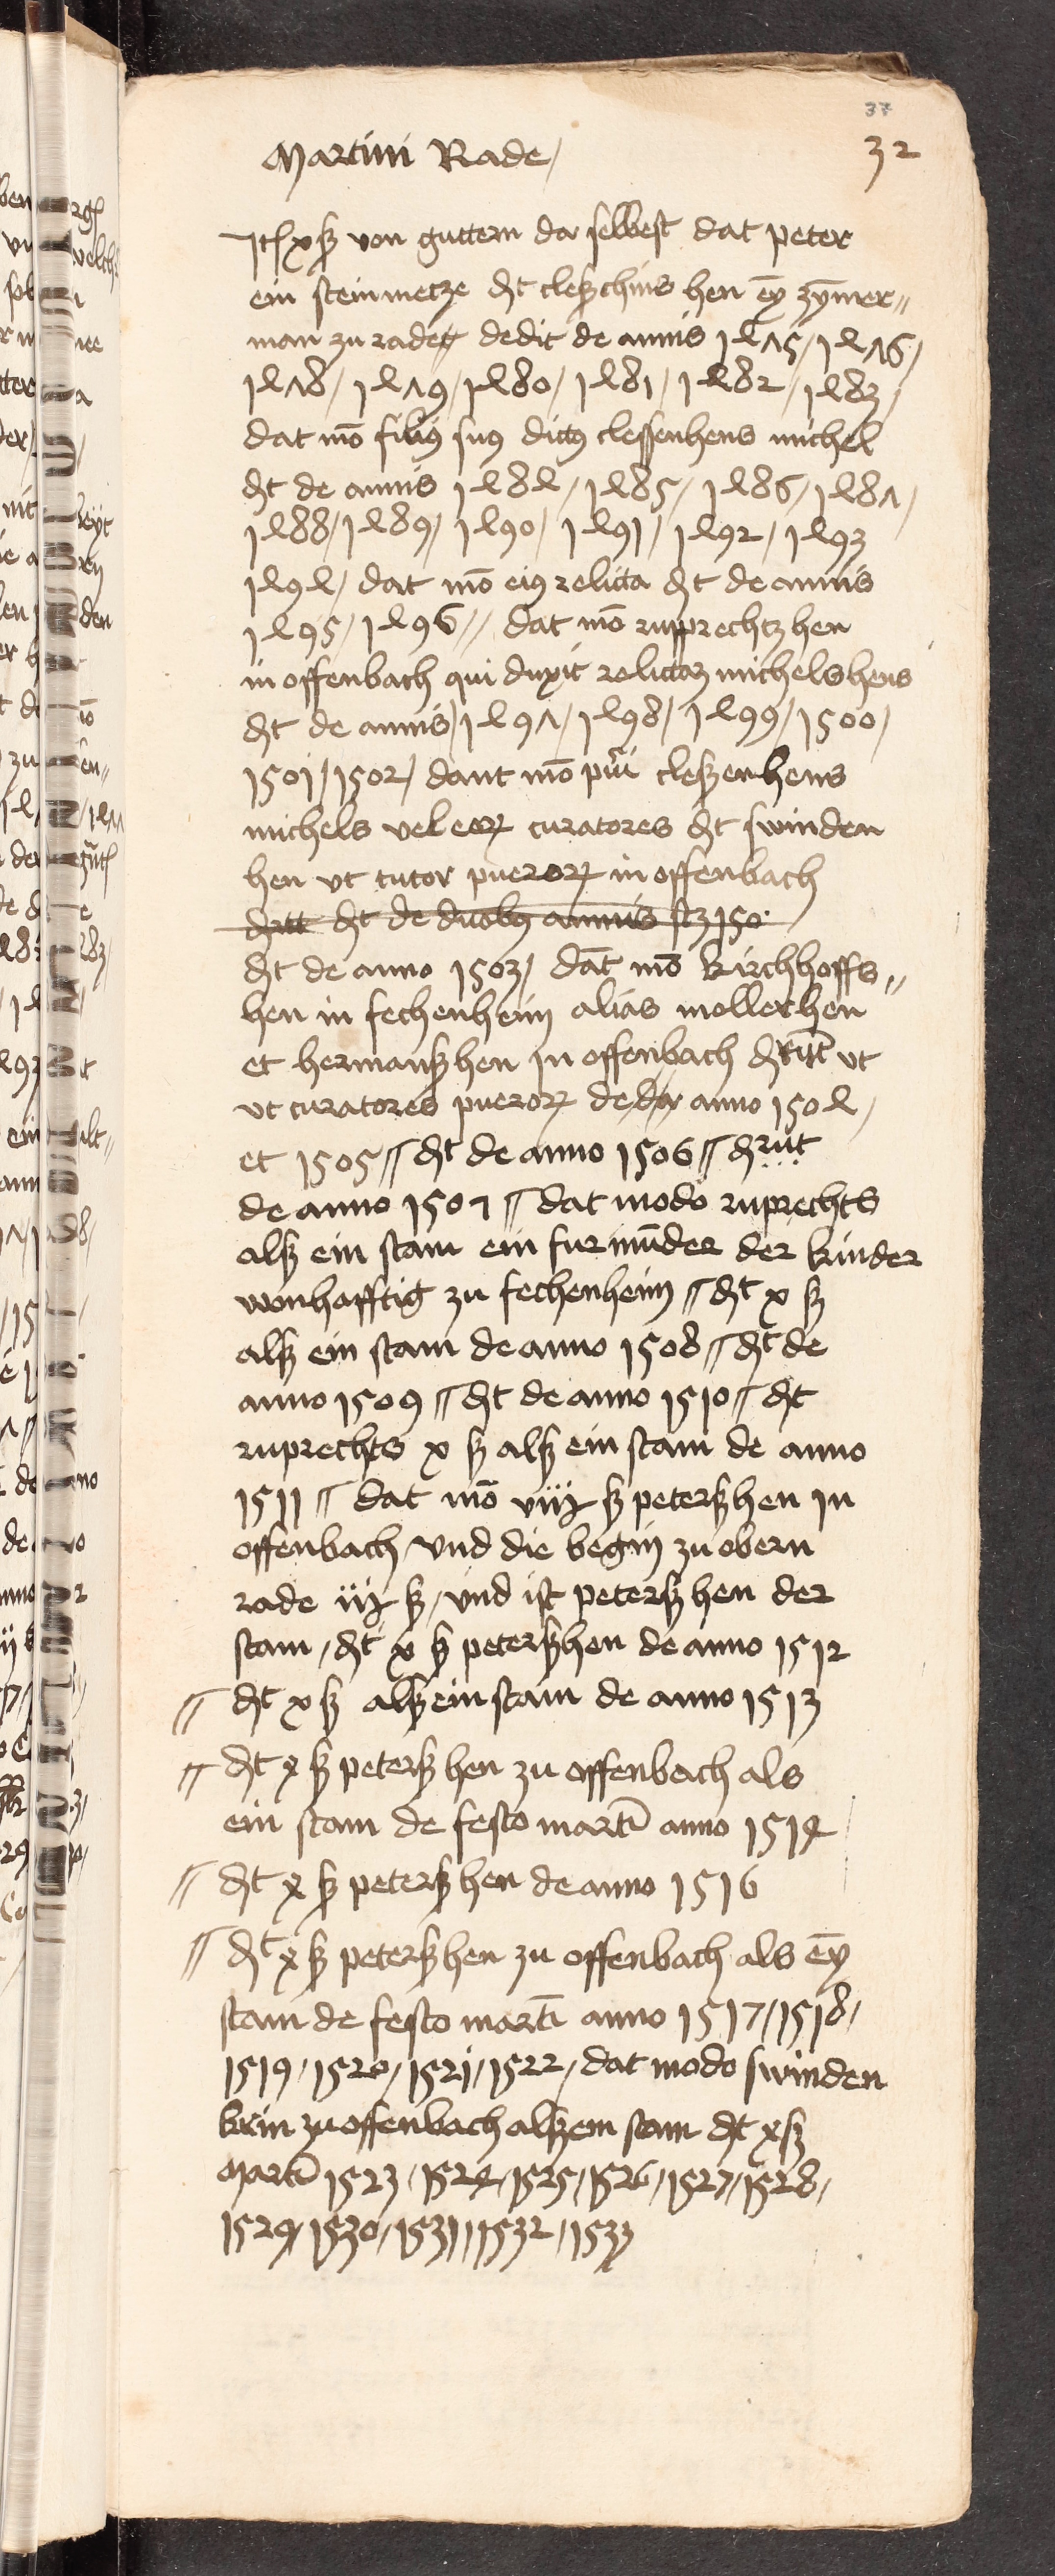 37
Martini Rade / 32
Jt̄ xß von guttern da selbest dat peter
ein steinmetze dt cleßchins hen eȳ zȳmer„
man zu rade dedit de annis 1475 / 1476 /
1478 / 1479 / 1480 / 1481 / 1482 / 1483 /
dat mō filiꝰ suꝰ dictꝰ clessenhens michel
dt de annis 1484 / 1485 / 1486 / 1487 /
1488 / 1489 / 1490 / 1491 / 1492 / 1493
1494 / dat mō eiꝰ relicta dt de annis
1495 / 1496 // dat mō rupprechtz hen
in offenbach qui duxit relictaz michelshens
dt de annis / 1497 / 1498 / 1499 / 1500 /
1501 / 1502 / dant mō pūi cleßenhens
michels vel eoꝝ curatores dt swinden
hen vt tutor pueroꝝ in offenbach
dt de duobꝰ annis scz 150
dt de anno 1503 / dāt mō kirchhoffs„
hen in fechenheim alias mollerhen
et hermanßhen in offenbach vt
vt curatores pueroꝝ de anno 1504 /
et 1505 // dt de anno 1506 //
de anno 1507 // dat modo ruprechts
alß ein stam ein furmūder der kinder
wonhafftig zu fechenheim // dt x ß
alß ein stam de anno 1508 // dt de
anno 1509 // dt de anno 1510 // dt
ruprechts x ß alß ein stam de anno
1511 // dat mō ß peterßhen in
offenbach / vnd die begin zu obern
rade ß / vnd ist peterßhen der
stam / dt x ß peterßhen de anno 1512
// dt xß alß ein stam de anno 1513
// dt x ß peterßhen zu offenbach als
ein stam de festo martī anno 1514
// dt x ß peterßhen de anno 1516
// dt x ß peterßhen zu offenbach als eȳ
stam de festo martī anno 1517 / 1518 /
1519 / 1520 / 1521 / 1522 / dat modo swinden
zu offenbach alß ein stam dt xß
Martī 1523 / 1524 / 1525 / 1526 / 1527 / 1528 /
1529 / 1530 / 1531 / 1532 / 1533